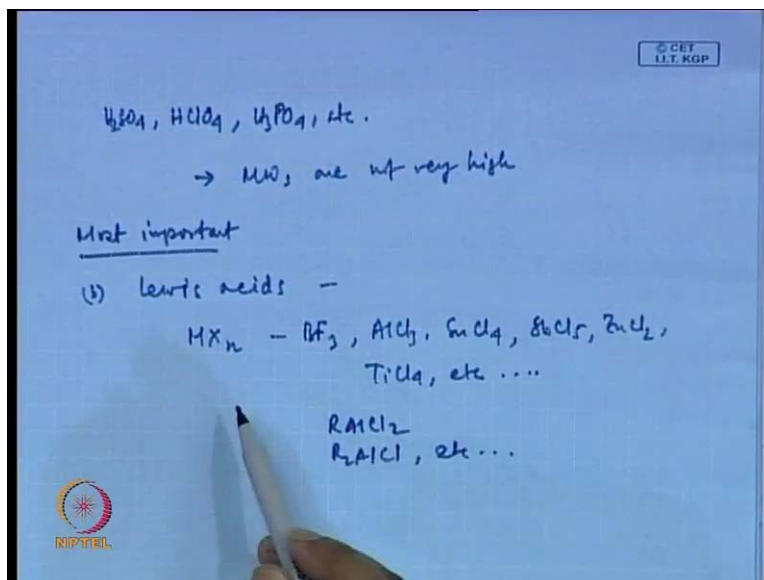 © CET
I.I.T. KGP
H2SO4, HClO4, H3PO4, etc.
→ MWs are not very high
Most important
(b) Lewis acids –
MXn – BF3, AlCl3, SnCl4, SbCl5, ZnCl2,
TiCl4, etc ....
RAlCl2
R2AlCl, etc ...
NPTEL